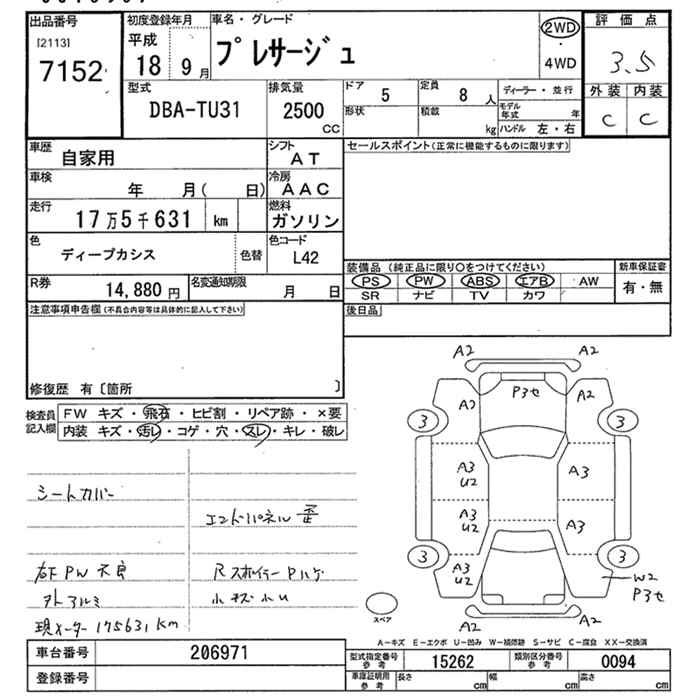 出品番号
[2113]
7152
初度登録年月
平成
18 9 月
車名・グレード
プレサージュ
2WD
・
4WD
評価点
3.5
外装 内装
C C
型式
DBA-TU31
排気量
2500
CC
ドア
5
定員
8 人
形状
積載
kg
ディーラー・並行
モデル年式 年
ハンドル 左・右
車歴
自家用
シフト
AT
セールスポイント(正常に機能するものに限ります)
車検
年 月( 日)
冷房
AAC
走行
17万5千631 km
燃料
ガソリン
色
ディープカシス
色替
色コード
L42
装備品 (純正品に限り○をつけてください)
新車保証書
PS PW ABS エアB AW
有・無
SR ナビ TV カワ
R券
14,880 円
名変通知期限
月 日
後日品
注意事項申告欄(不具合内容等は具体的に記入して下さい)
修復歴 有〔箇所 〕
検査員記入欄
FW キズ・飛石・ヒビ割・リペア跡・×要
内装 キズ・汚レ・コゲ・穴・スレ・キレ・破レ
シートカバー
エンドパネル 歪
右F PW 不良
Rスポイラー Pハゲ
外アルミ
小キズ小U
現メーター 175631 km
A2 A2
P3セ
A2 A2
3 3
A3
U2
A3
A3
U2
A3
3 3
A3
U2
W2
P3セ
A2 A2
スペア
A-キズ E-エクボ U-凹み W-補修跡 S-サビ C-腐食 XX-交換済
車台番号
206971
型式指定番号
参考
15262
類別区分番号
参考
0094
登録番号
車庫証明用
参考
長さ cm
幅 cm
高さ cm